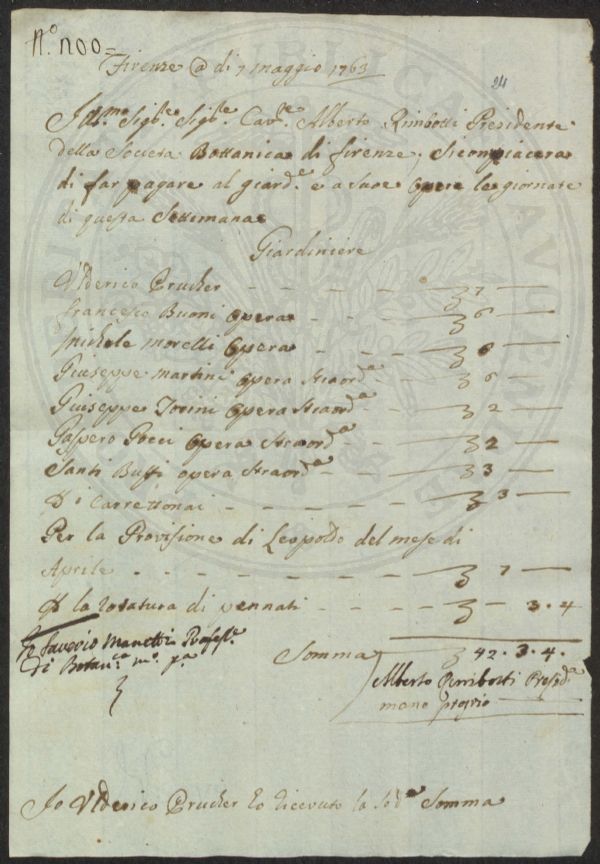 N.o 200=
Firenze @ di 7 maggio 1763
24
Ill.mo Sig.re Sig.re Cav.re Alberto Rimbotti Presidente
della Societa Bottanica di firenze. Si compiacera
di far pagare al giard.e e a sue opere le giornate
di questa Settimana
Giardiniere
Ulderico Prucher - - - - - 7 —
francesco Buoni opera - - - 6 —
Michele morelli opera - - - 6 —
Giuseppe martini opera straord.a - - 6 —
Giuseppe Torini opera straord.a - - 2 —
Gaspero Pocci opera straord.a - - 2 —
Santi Buffi opera straord.a - - 3 —
P i Carrettonai - - - - - 3 —
Per la Provisione di Leopoldo del mese di
Aprile - - - - - - 7 —
P la di pennati - - - - — 3.4
Saverio Manetti Profess.e
di Botan.ca m.o p.a
Somma 42.3.4.
Alberto Rimbotti Presid.e
mano propria
Io Ulderico Prucher ho ricevuto la sod.a Somma